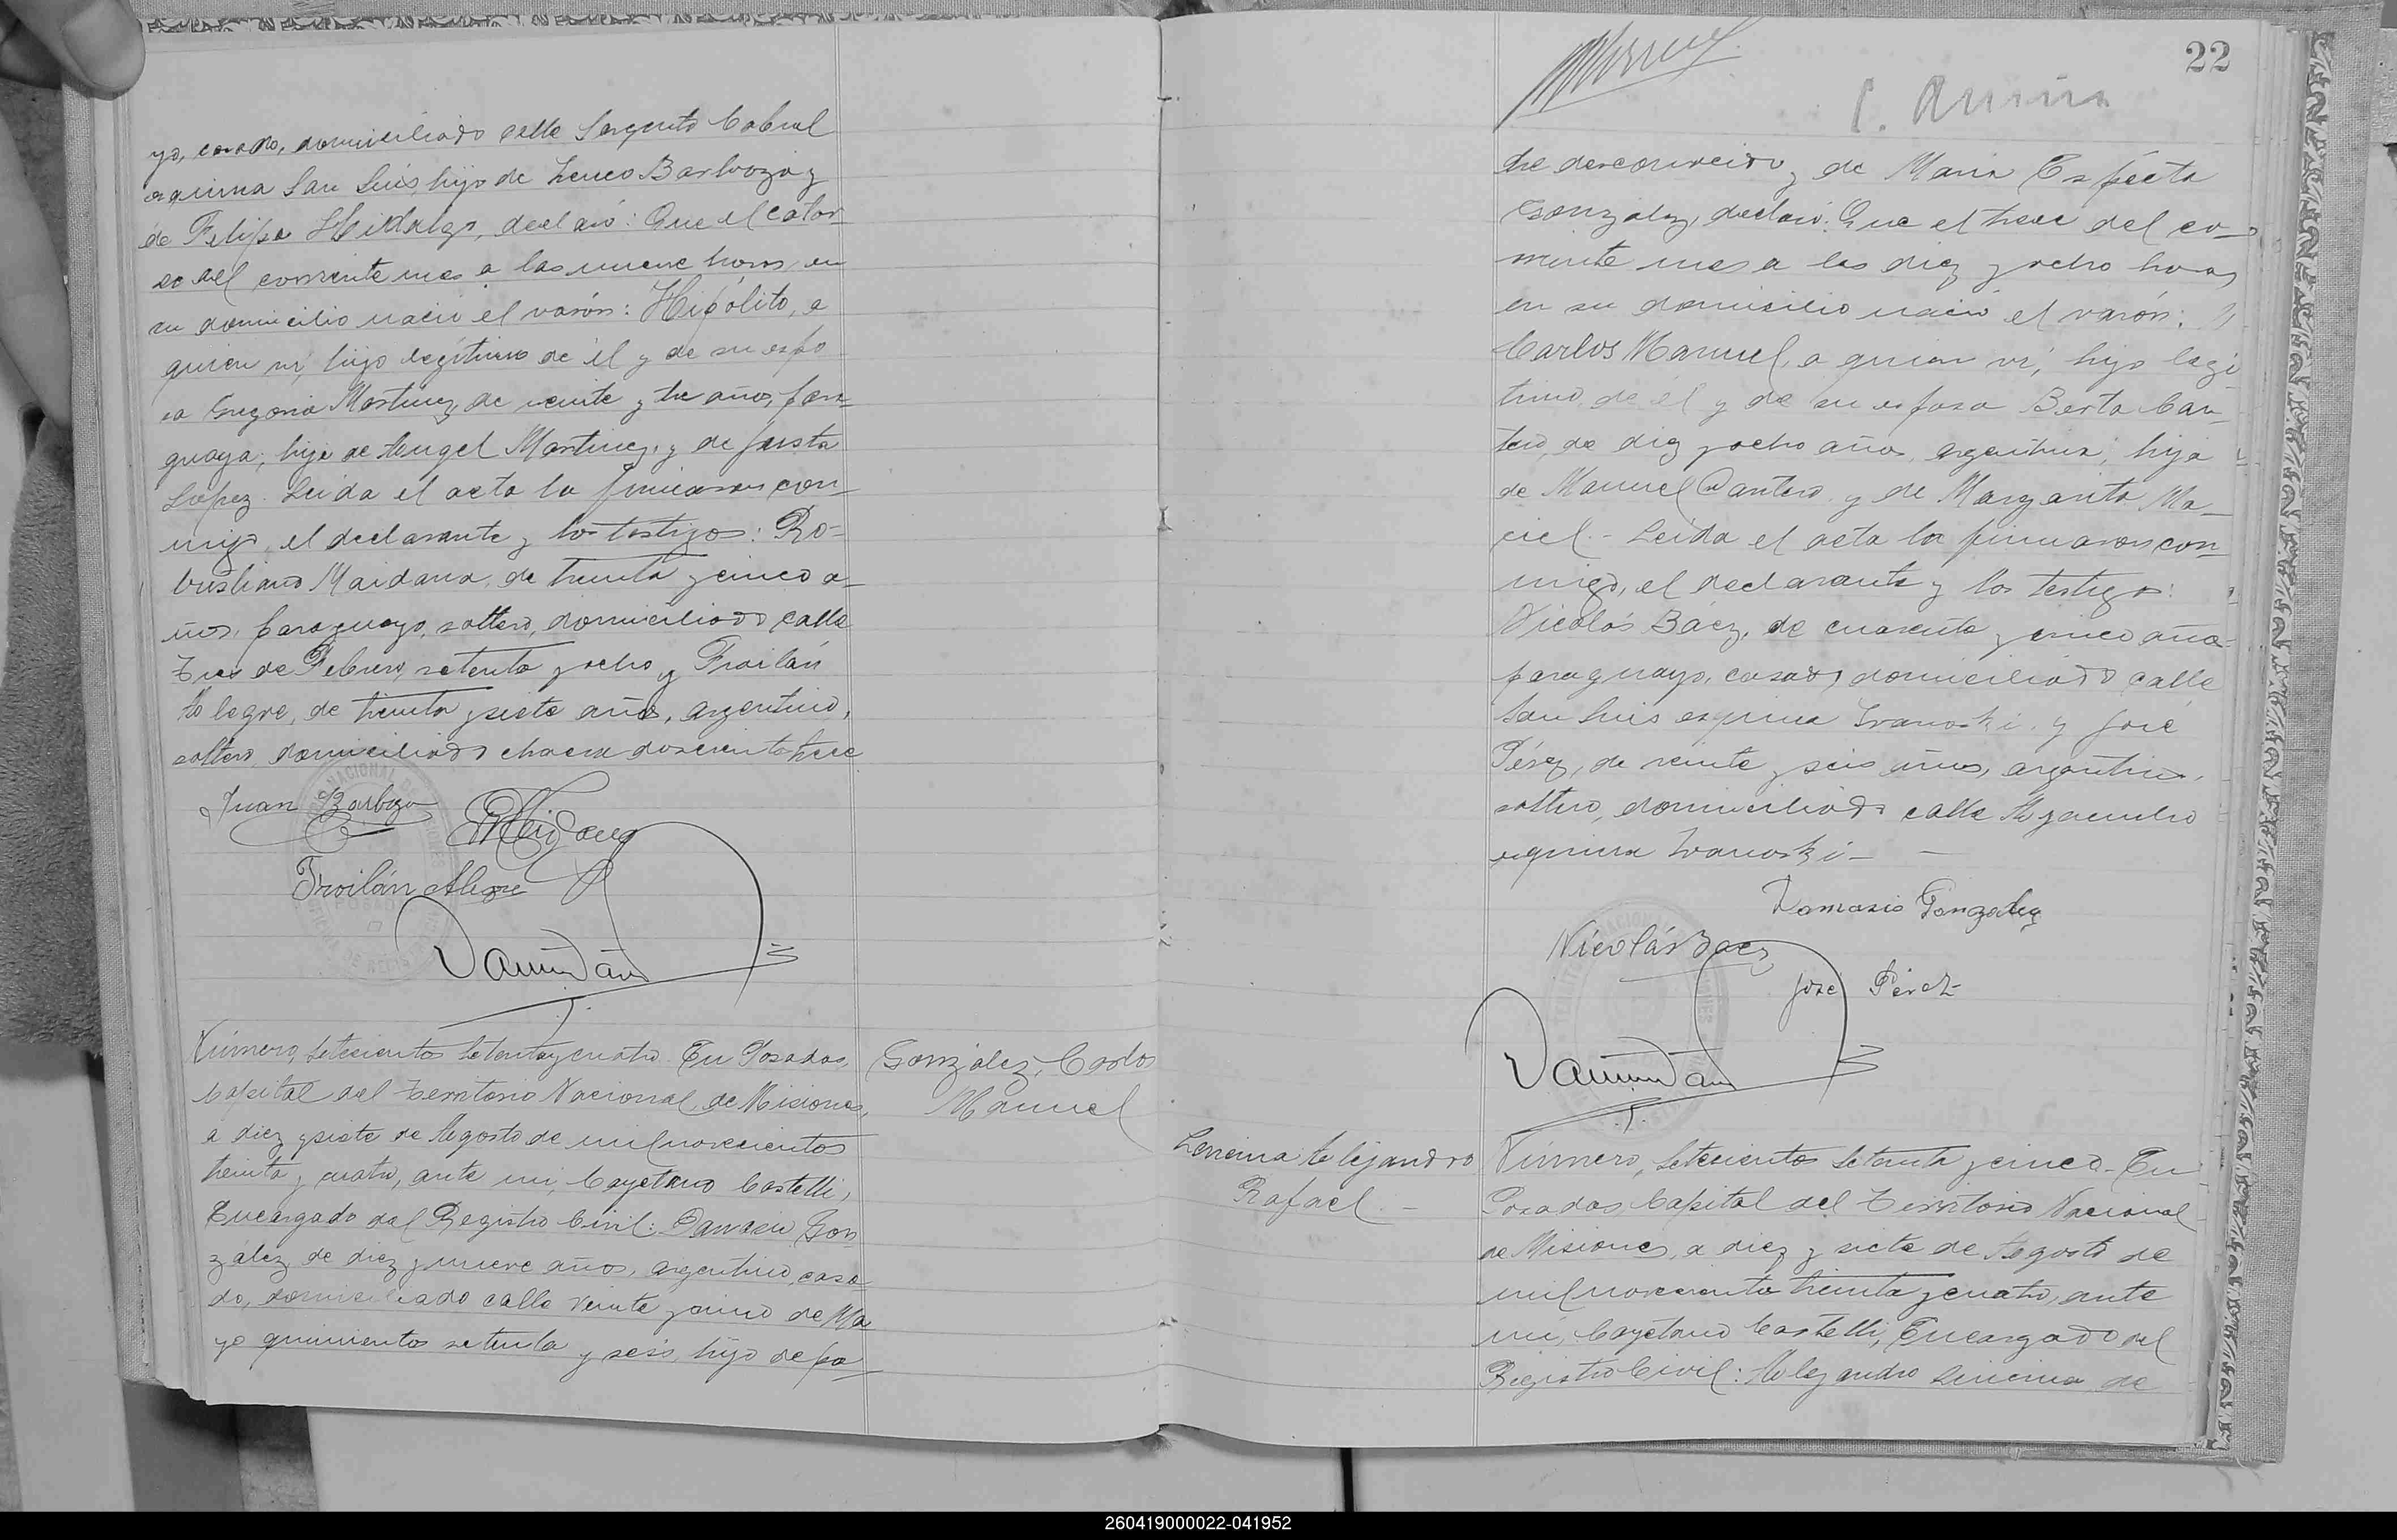 yo, casado, domiciliado calle Sargento Cabral
esquina San Luis, hijo de Barboza y
de Felipa Hidalgo, declaró: Que el cator
ce del corriente mes a las nueve horas, en
su domicilio nació el varón: Hipólito, a
quien ví, hijo legítimo de él y de su espo
sa Gregoria Martinez, de veinte y tre años, para
guaya, hija de Angel Martinez, y de Justa
López. Leida el acta la firmaron con-
migo, el declarante y los testigos: Ro-
bustiano Maidana, de treinta y cinco a-
ños, paraguayo, soltero, domiciliado calle
Tres de Febrero, setenta y ocho y Froilán
Alegre, de treinta y siete años, argentino,
soltero, domiciliado chacra doscientos trece
Juan Barboza
RMaidana
Froilán Alegre
Número, Setecientos Setenta y cuatro. En Posadas,
Capital del Territorio Nacional, de Misiones,
a diez y siete de Agosto de mil novecientos
treinta y cuatro, ante mi, Cayetano Castelli,
Encargado del Registro Civil: Damasio Gon
zález, de diez y nueve años, argentino, casa
do, domiciliado calle Veinte y cinco de Ma
yo quinientos setenta y seis, hijo de pa-
González, Carlos
Manuel
22
dre desconocido y de Maria Espíecta
González, declaró: Que el trece del co-
rriente mes a las diez y ocho horas,
en su domicilio nació el varón:
Carlos Manuel, a quien ví, hijo legí
timo, de él y de su esposa Berta Can
tero, de diez y ocho años, argentina, hija
de Manuel Cantero y de Margarita Ma-
ciel.- Leída el acta la firmaron con
migo, el declarante y los testigos:
Nicolás Báez, de cuarenta y cinco años
paraguayo, casado, domiciliado calle
San Luis esquina Ivanoski y José
Pérez, de veinte y seis años, argentino,
soltero, domiciliado calle Ayacucho
esquina Ivanoski-
Damasio Gonzalez
Nicolás Baez
José Pérez
Lencina Alejandro
Rafael.-
Número, Setecientos Setenta y cinco- En
Posadas, Capital del Territorio Nacional
de Misiones, a diez y siete de Agosto de
mil novecientos treinta y cuatro, ante
mi, Cayetano Castelli, Encargado del
Registro Civil: Alejandro Lencina de
260419000022-041952